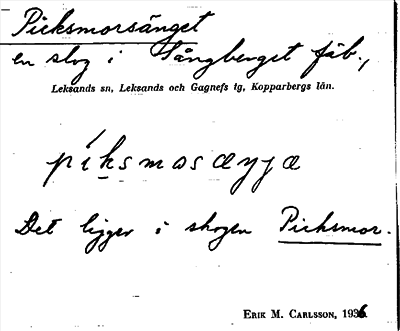 Picksmorsänget
en slog i Sångberget fäb.,
Leksands sn, Leksands och Gagnefs tg, Kopparbergs län.
píksmosæŋjæ
Det ligger i skogen Picksmor.
ERIK M. CARLSSON, 1936.